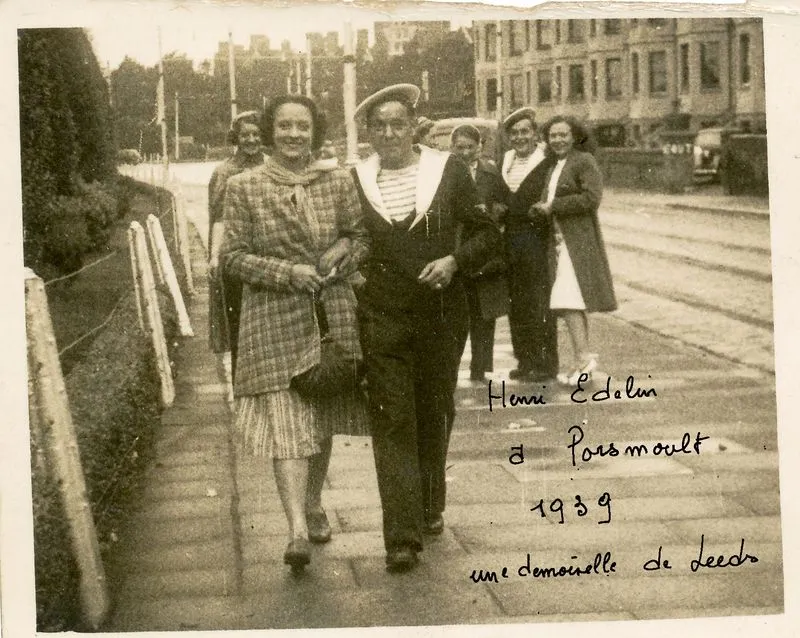 Henri Edelin
a Porsmoult
1939
une demoiselle de Leeds